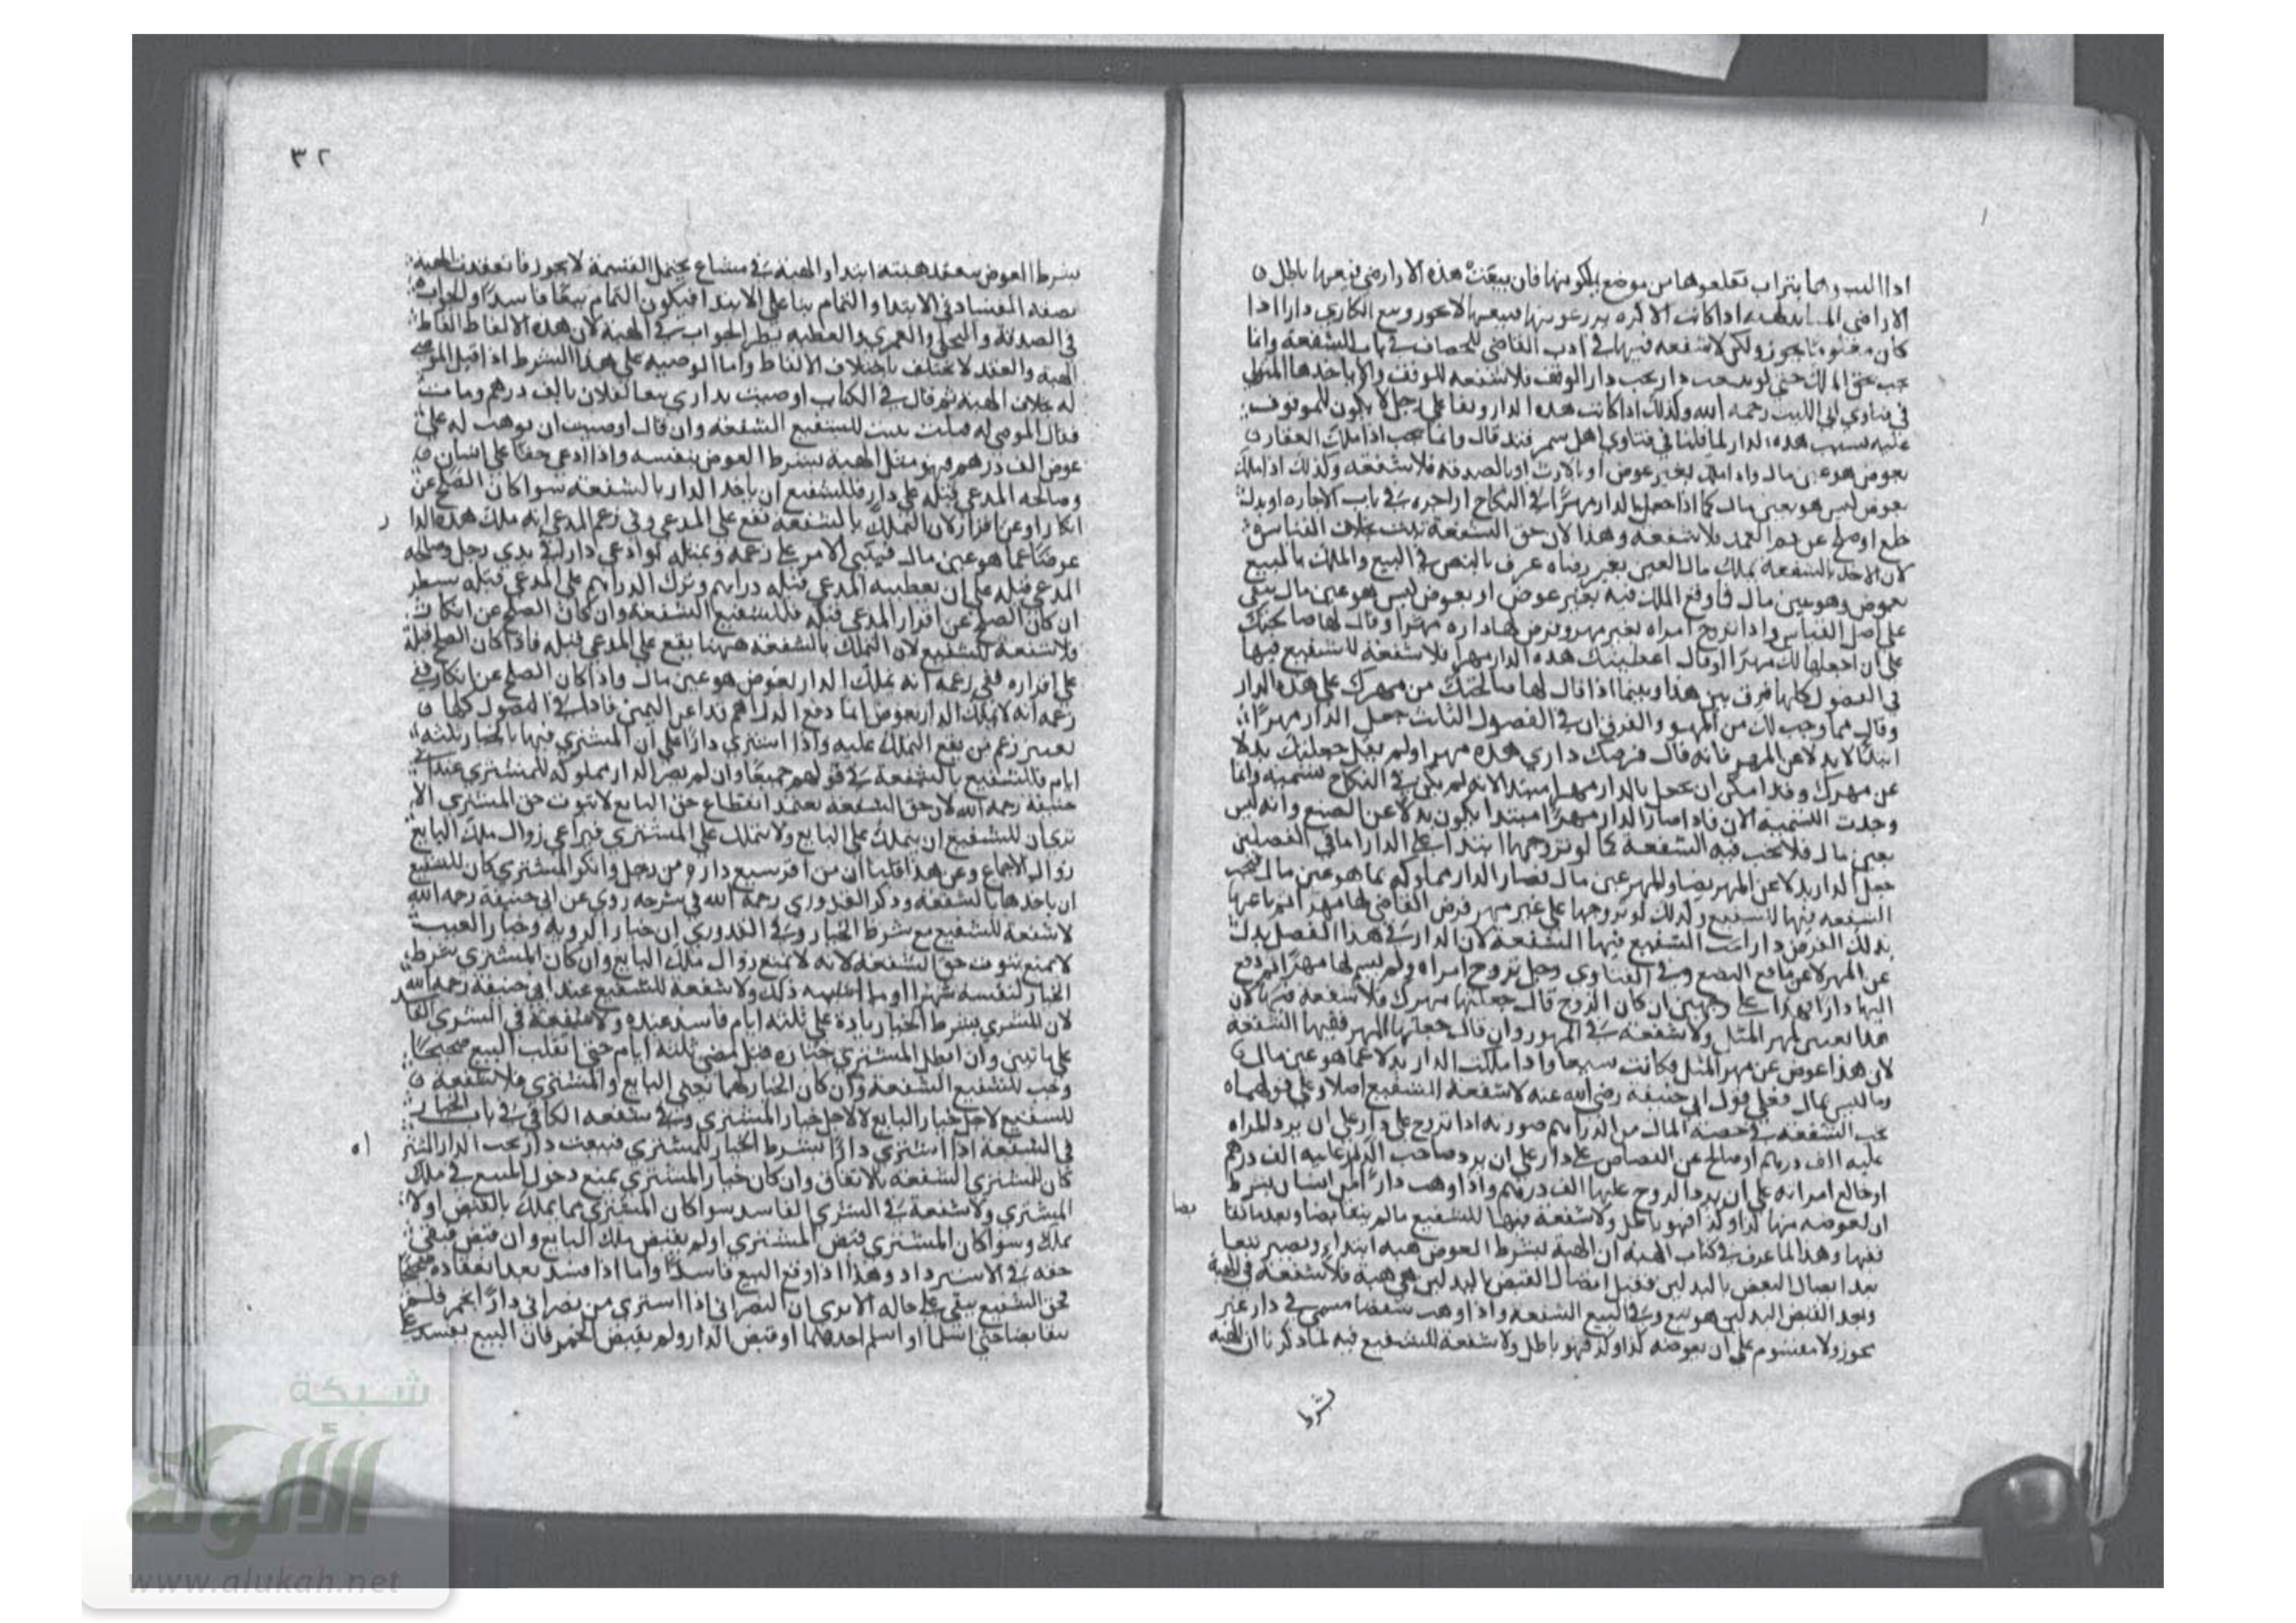 اذا البت وهما بتراب نقلعوها من موضع يملكونها فان بيعت هذه الاراضى فبيعها باطل
الاراضى اذا كانت الاكره يزرعونها فبيعها لا يجوز وبيع دارا اذا
كان يجوز ولكن لا شفعه فيها في ادب القاضي للخصاف في باب الشفعة وانما
يجب بحق الملك حتى لو بيعت دار بجنب دار الوقف فلا شفعه للوقف ولا ياخذها المتولى
في فتاوى ابي الليث رحمه الله وكذلك اذا كانت هذه الدار وقفا على رجل لا يكون للموقوف
عليه شفعه هذه الدار لما قلنا في فتاوى اهل سمرقند قال وانما يجب اذا ملك العقار
بعوض هو عين مال واذا ملك بغير عوض او بالارث او بالصدقه فلا شفعه وكذلك اذا ملك
بعوض ليس هو بعين مال كما اذا جعل الدار مهرا في النكاح او اجره في باب الاجاره او بدل
خلع او صلح عن دم العمد فلا شفعه وهذا لان حق الشفعة ثبت بخلاف القياس
لان الاخذ بالشفعه تملك مال الغير بغير رضاه عرف بالنص في البيع والملك بالمبيع
بعوض وهو عين مال فما وقع الملك فيه بغير عوض او بعوض ليس هو عين مال يبقى
على اصل القياس واذا تزوج امراه بغير مهر وفرض لها داره مهرا وقال لها صالحتك
على ان اجعلها لك مهرا او قال اعطيتك هذه الدار مهرا فلا شفعة للشفيع فيها
في الفصول كلها فرق بين هذا وبينما اذا قال لها صالحتك من مهرك على هذه الدار
وقال مما وجب لك من المهر والفرق ان في الفصول الثلث جعل الدار مهرا
ابتدا لا بدلا عن المهر فانه قال فرضتك داري هذه مهرا ولم يقل جعلتك بدلا
عن مهرك وقد امكن ان يجعل الدار مهرا مبتدا لانه لم يكن في النكاح تسميه وانما
وجدت التسميه الان فاذا صار الدار مهرا مبتدا يكون بدلا عن البضع وانه ليس
بعين مال فلا يجب فيه الشفعة كما لو تزوجها ابتدا على الدار اما في الفصلين
جعل الدار بدلا عن المهر نصا والمهر عين مال فصار الدار مملوكه بما هو عين مال فيجب
الشفعه فيها للشفيع وكذلك لو تزوجها على غير مهر فرض القاضي لها مهر ثم باعها
بذلك الفرض دارا يجب للشفيع فيها الشفعة لان الدار في هذا الفصل بدل
عن المهر لا عن منافع البضع وفي الفتاوى رجل تزوج امراه ولم يسم لها مهرا ثم دفع
اليها دارا فهذا على وجهين ان كان الزوج قال جعلتها مهرك فلا شفعه فيها لان
هذا مهر المثل ولا شفعه في المهور وان قال جعلتها المهر ففيها الشفعة
لان هذا عوض عن مهر المثل فكانت بيعا واذا ملكت الدار بدلا عما هو عين مال
وما ليس بمال فعلى قول ابي حنيفة رضى الله عنه لا شفعه للشفيع اصلا وعلى قولهما
يجب الشفعه في حصة المال من الدراهم صورته اذا تزوج على دار على ان يرد المراه
عليه الف درهم او صالح عن القصاص على دار على ان يرد صاحب عليه الف درهم
او خالع امراته على ان يرد الزوج عليها الف درهم واذا وهب دارا من انسان بشرط
ان يعوضه منها كذا وكذا فهو باطل ولا شفعة فيها للشفيع ما لم يتقابضا وبعدما
ففيها وهذا لما عرف في كتاب الهبه ان الهبة بشرط العوض هبه ابتداء ويصير بيعا
بعد اتصال القبض بالبدلين فقبل اتصال القبض بالبدلين هي هبة فلا شفعة في الهبة
وبعد القبض البدلين هو بيع وفي البيع الشفعه واذا وهب شقصا مسمى في دار غير
محوز ولا مقسوم على ان يعوضه كذا وكذا فهو باطل ولا شفعة للشفيع فيه لما ذكرنا ان الهبه
بشرط
٣٢
بشرط العوض ينعقد هبته ابتدا والهبة في مشاع يحتمل القسمة لا يجوز فانعقدت الهبه
بصفه الفساد في الابتدا والتمام بنا على الابتدا فيكون التمام بيعا فاسدا والجواب
في الصدقة والنحلى والعمرى والعطيه نظير الجواب في الهبة لان هذه الالفاظ الفاظ
الهبة والعقد لا يختلف باختلاف الالفاظ واما الوصيه على هذا الشرط اذا قبل الموصى
له بخلاف الهبه ثم قال في الكتاب اوصيت بداري بيعا لفلان بالف درهم ومات
فقال الموصى له قبلت يثبت للشفيع الشفعه وان قال اوصيت ان يوهب له على
عوض الف درهم فهو مثل الهبه بشرط العوض بنفسه واذا ادعى حقا على انسان
وصالحه المدعى قبله على دار فللشفيع ان ياخذ الدار بالشفعه سوا كان الصلح عن
انكار او عن اقرار لان التملك بالشفعة يقع على المدعي وفي زعم المدعي انه ملك هذه الدار
عوضا عما هو عين مال فينبني الامر على زعمه وبمثله لو ادعى دارا في يدي رجل وصالحه
المدعى قبله على ان يعطيه المدعى قبله دراهم وترك الدراهم على المدعى قبله ينظر
ان كان الصلح عن اقرار المدعى قبله فللشفيع الشفعه وان كان الصلح عن انكار
فلا شفعة للشفيع لان التملك بالشفعه ههنا يقع على المدعى قبله فاذا كان الصلح قبله
على اقراره ففي زعمه انه يملك الدار بعوض هو عين مال واذا كان الصلح عن انكار ففي
زعمه انه لا يملك الدار بعوض انما دفع الدراهم فدا عن اليمين في الفصول كلها
يعتبر زعم من يقع التملك عليه واذا اشترى دارا على ان المشتري فيها بالخيار ثلثة
ايام فللشفيع بالشفعة في قولهم جميعا وان لم يصر الدار مملوكه للمشتري عند ابي
حنيفة رحمه الله لان حق الشفعه يعتمد انقطاع حق البايع لا ثبوت حق المشترى الا
ترى ان للشفيع ان يتملك على البايع ولا يتملك على المشترى فيراعى زوال ملك البايع
زوال الاجماع وعن هذا قلنا ان من اقر ببيع داره من رجل وانكر المشتري كان للشفيع
ان ياخذها بالشفعه وذكر القدوري رحمه الله في شرحه روي عن ابي حنيفة رحمه الله
لا شفعة للشفيع مع شرط الخيار وفي القدوري ان خيار الرويه وخيار العيب
لا يمنع ثبوت حق الشفعه لانه لا يمنع زوال ملك البايع وان كان المشتري شرط
الخيار لنفسه شهرا او ما اشبه ذلك ولا شفعة للشفيع عند ابي حنيفة رحمه الله
لان المشترى بشرط الخيار زيادة على ثلثه ايام فاسد عنده ولا شفعة في الشرى الفاسد
على ما تبين وان ابطل المشترى خياره قبل مضى ثلثة ايام حتى انقلب البيع صحيحا
وجب للشفيع الشفعة وان كان الخيار لهما يعني البايع والمشتري فلا شفعة
للشفيع لاجل خيار البايع لا لاجل خيار المشترى وفي شفعه الكافي في باب الخيار
في الشفعة اذا اشترى دارا بشرط الخيار للمشترى فبيعت دار بجنب الدار المشتراه
كان للمشترى الشفعه بالاتفاق وان كان خيار المشترى يمنع دخول المبيع في ملك
المشتري ولا شفعة في الشرى الفاسد سوا كان المشترى مما يملك بالقبض او لا
يملك وسوا كان المشترى قبض المشترى او لم يقبض ملك البايع وان قبض فبقي
حقه في الاسترداد وهذا اذا وقع البيع فاسدا واما اذا فسد بعد انعقاده صحيحا
فحق الشفيع يبقى على حاله الا يرى ان النصراني اذا اشترى من نصراني دارا بخمر فلم
يتقابضا حتى اسلما او اسلم احدهما او قبض الدار ولم يقبض الخمر فان البيع يفسد
شبكة
الألوكة
www.alukah.net